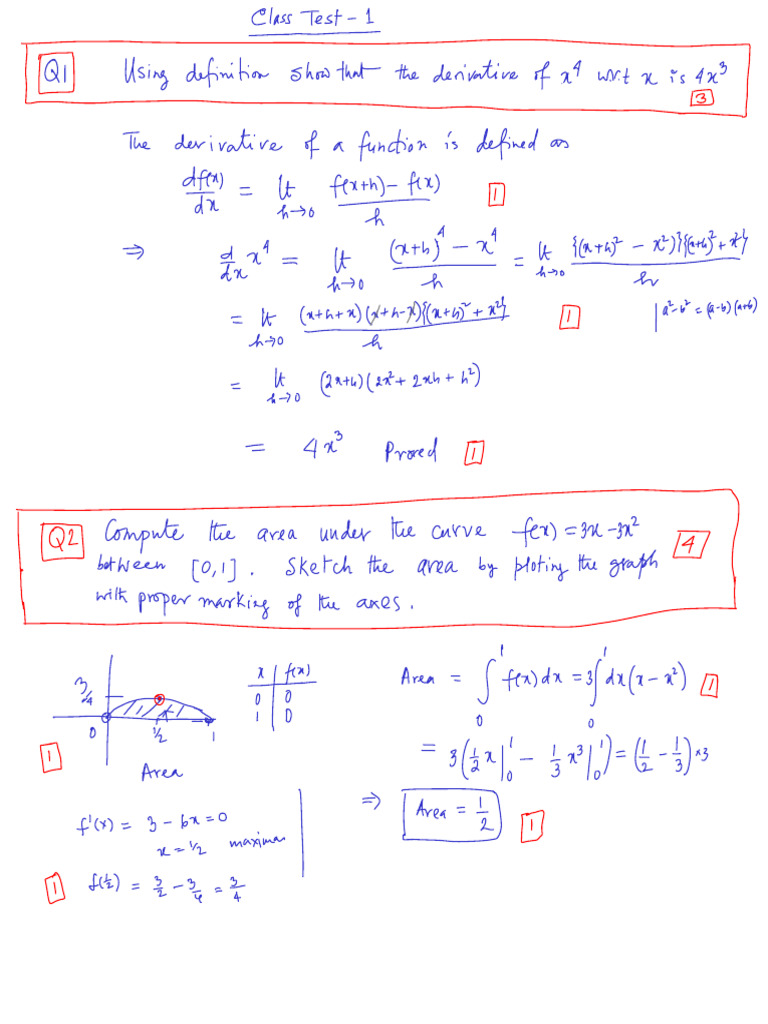 Class Test - 1
Q1 Using definition show that the derivative of x⁴ w.r.t x is 4x³
3
The derivative of a function is defined as
df(x)/dx = lt h→0 (f(x+h) - f(x))/h 1
⇒ d/dx x⁴ = lt h→0 ((x+h)⁴ - x⁴)/h = lt h→0 {(x+h)² - x²}{(x+h)² + x²}/h
= lt h→0 (x+h+x)(x+h-x){(x+h)² + x²}/h 1 | a²-b² = (a-b)(a+b)
= lt h→0 (2x+h)(2x² + 2xh + h²)
= 4x³ Proved 1
Q2 Compute the area under the curve f(x) = 3x - 3x²
between [0,1]. Sketch the area by ploting the graph 4
with proper marking of the axes.
3/4
0 1/2 1
1
Area
x f(x)
0 0
1 0
Area = ∫₀¹ f(x) dx = 3∫₀¹ dx (x - x²) 1
= 3(1/2 x|₀¹ - 1/3 x³|₀¹) = (1/2 - 1/3) × 3
⇒ Area = 1/2 1
f'(x) = 3 - 6x = 0
x = 1/2 maxima
1 f(1/2) = 3/2 - 3/4 = 3/4